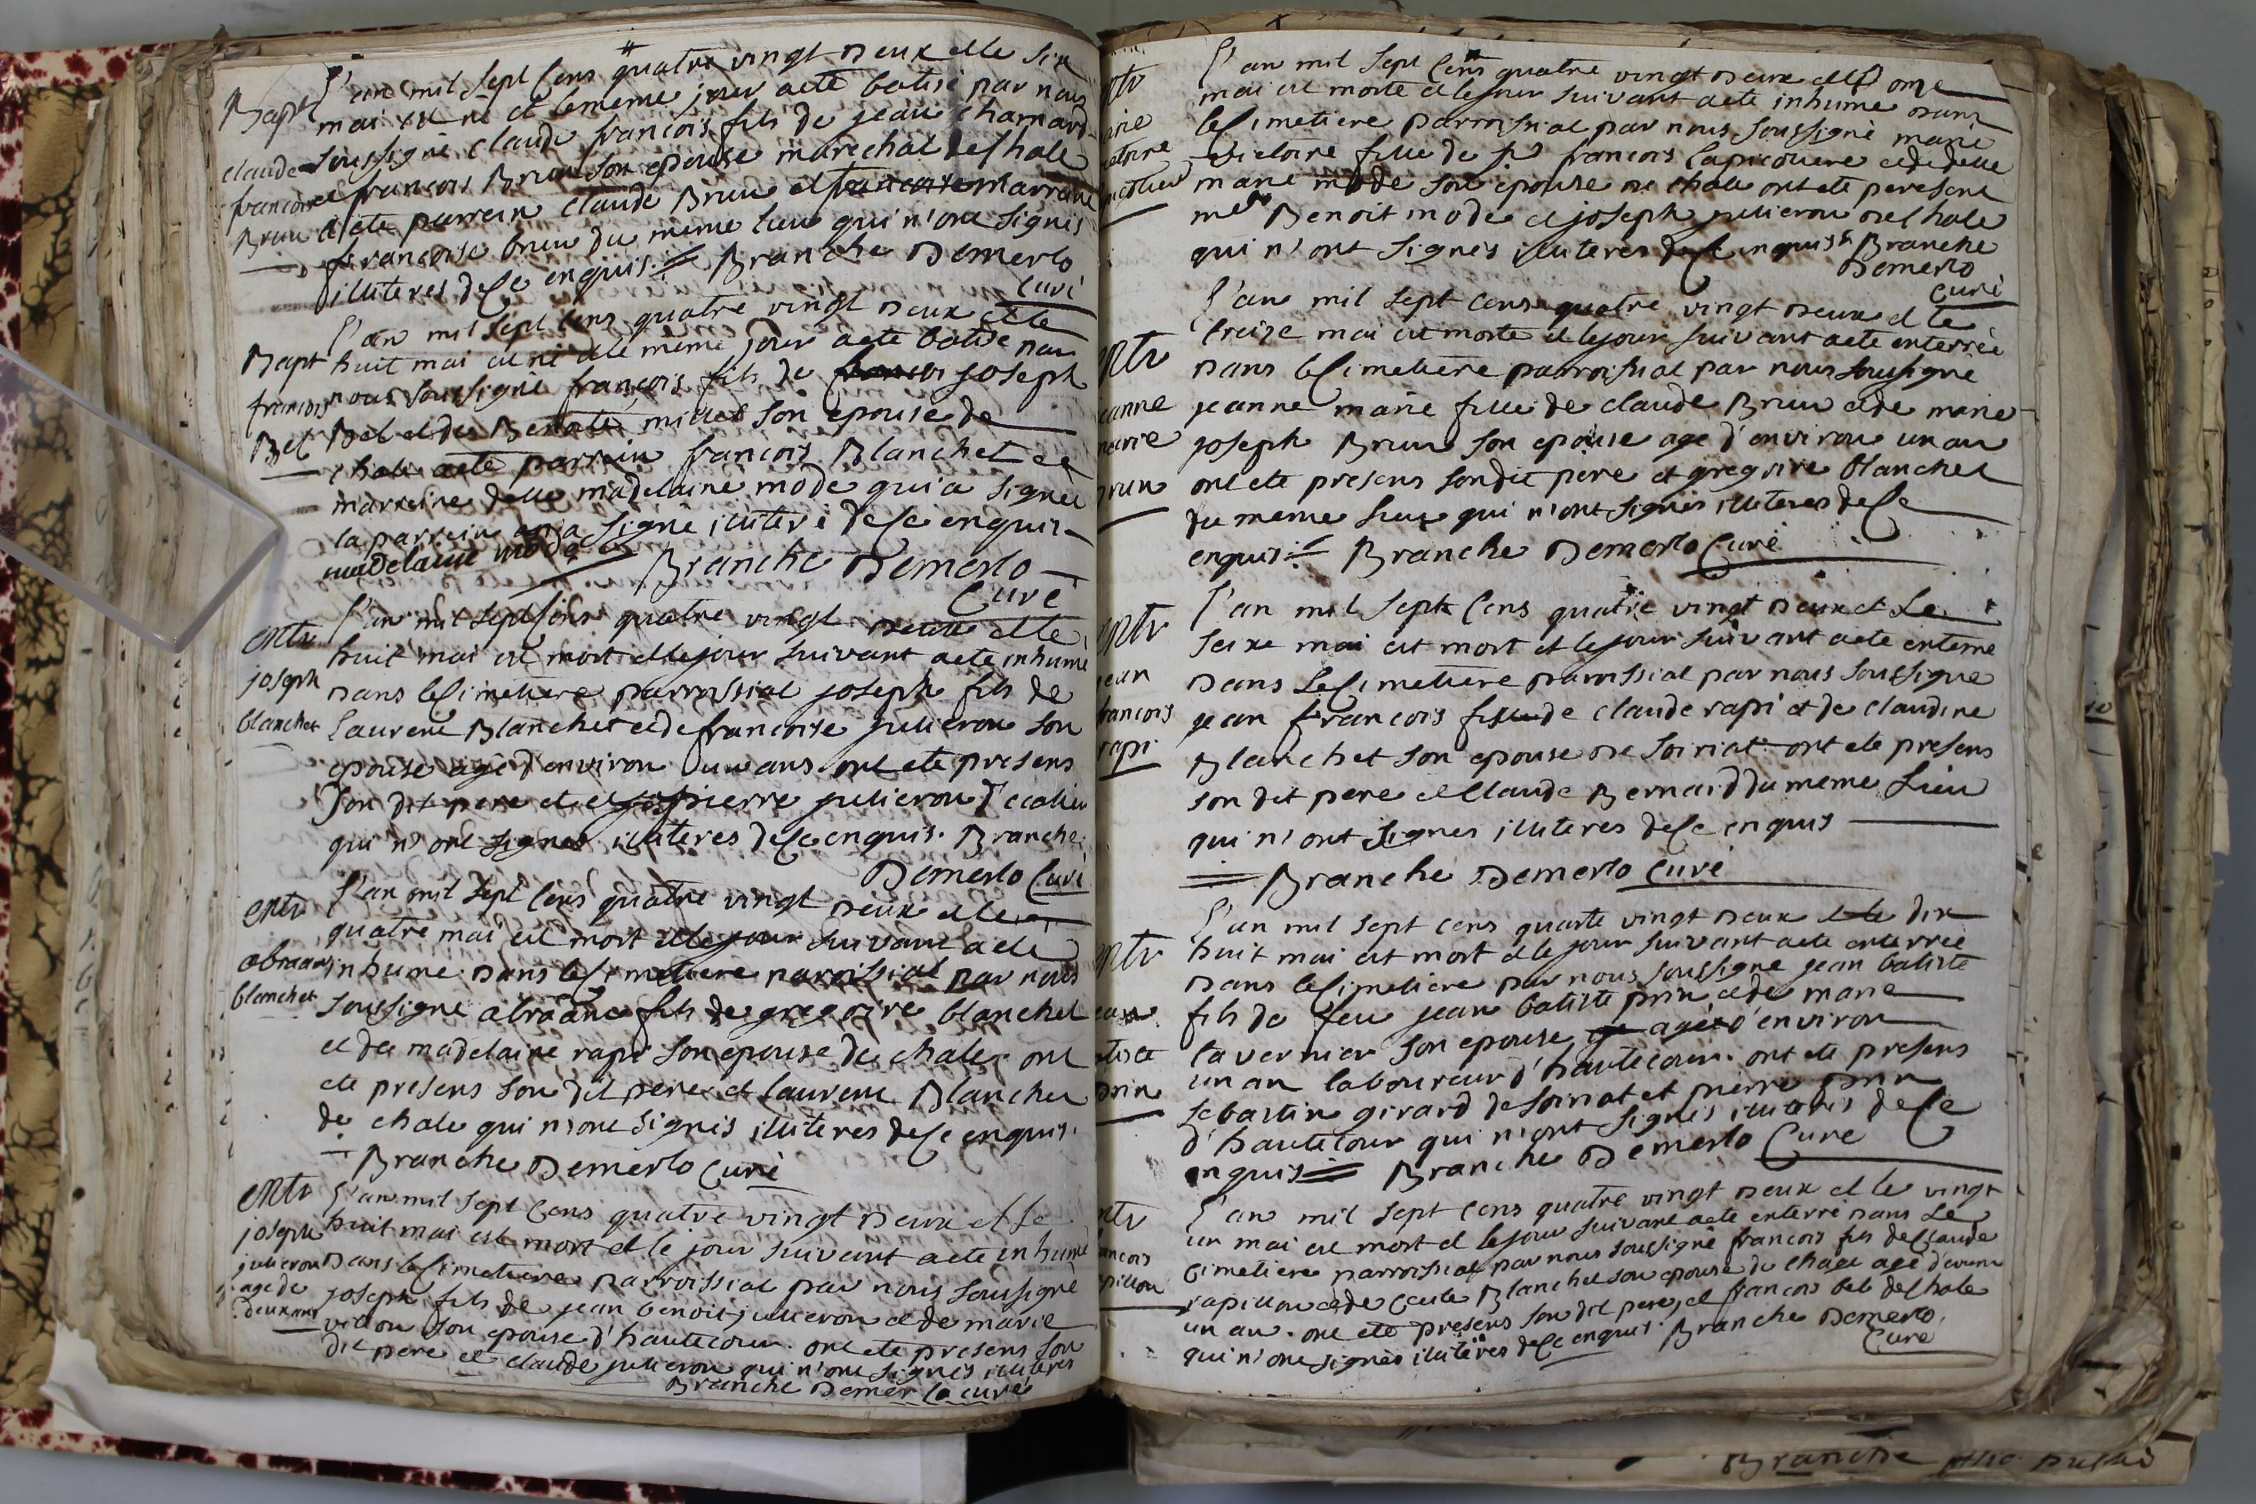 l'an mil sept cens quatre vingt deux et le six
Bapt
mai est né et le meme jour a eté batisé par nous
claude
soussigné claude francois fils de jean
francois
et francois Brun son epouse marechal de chale
Brun
a eté parrein claude Brun et francoise marraine
francoise brun du même lieu qui n'ont signés
illiteres de ce enquis. Branche Demerlo
curé
l'an mil sept cens quatre vingt deux et le
Bapt
huit mai est né et le même jour a eté batisé par
francois
nous soussigné françois fils de francois joseph
Bel
Bel et de Benoite millet son epouse de
chale a eté parrein francois Blanchet et
marreine delle madelaine mode qui a signée
la parrein n'a signé illiteré de ce enquis
madelaine mode Branche Demerlo
Curé
l'an mil sept cens quatre vingt deux et le
entr
huit mai est mort et le jour suivant a eté inhumé
joseph
dans le cimetiere parroissial joseph fils de
blanchet
laurent Blanchet et de francoise julieron son
epouse agé d'environ ans ont eté presens
son dit pere et pierre julieron
qui n'ont signés illiteres de ce enquis. Branche
Demerlo Curé
l'an mil sept cens quatre vingt deux et le
entr
quatre mai est mort et le jour suivant a eté
abraam
inhume dans le cimetiere paroissial par nous
blanchet
soussigné abraam fils de gregoire blanchet
et de madelaine rapi son epouse de chale. ont
eté presens son dit pere et laurent Blanchet
de chale qui n'ont signés illiteres de ce enquis.
Branche Demerlo Curé
entr
l'an mil sept cens quatre vingt deux et le
joseph
huit mai est mort et le jour suivant a eté inhumé
julieron
dans le cimetiere parroissial par nous soussigné
age de
joseph fils de jean benoit julieron et de marie
deux ans
villon son epouse d'hautecour. ont eté presens son
dit pere et claude julieron qui n'ont signés illiteres
Branche Demerlo curé
l'an mil sept cens quatre vingt deux et le onze
mai est morte et le jour suivant a eté inhume dans
le cimetiere parroissial par nous soussigné marie
victoire fille de sr francois lapicotiere et de delle
marie mode son epouse de chale ont eté peresent
Benoit mode et joseph julieron de chale
qui n'ont signés illiteres de ce enquis Branche
Demerlo
curé
l'an mil sept cens quatre vingt deux et le
entr
treize mai est morte et le jour suivant a eté enterrée
dans le cimetiere parroissial par nous soussigné
jeanne marie fille de claude Brun et de marie
marie
joseph Brun son epouse agé d'environ un an
brun
ont eté presens son dit pere et gregoire blanchet
du meme lieu qui n'ont signés illiteres de ce
enquis Branche Demerlo Curé
entr
l'an mil sept cens quatre vingt deux et le
seixe mai est mort et le jour suivant a eté enterré
jean
dans le cimetiere paroissial par nous soussigné
francois
jean francois fils de claude rapi et de claudine
rapi
Blanchet son epouse de soiriat ont eté presens
son dit pere et claude Bernard du meme lieu
qui n'ont signes illiteres de ce enquis
Branche Demerlo Curé
l'an mil sept cens quarte vingt deux et le dix
entr
huit mai est mort et le jour suivant a eté enterrée
dans le cimetiere par nous soussigne jean batiste
jean
fils de feu jean batiste prin et de marie
batiste
lavernier son epouse agé d'environ
prin
un an laboureur d'hautecour. ont eté presens
sebastin girard de soiriat et pierre prin
d'hautecour qui n'ont signés illiterés de ce
enquis Branche Demerlo Curé
entr
l'an mil sept cens quatre vingt deux et le vingt
un mai est mort et le jour suivant a eté enterré dans le
francois
cimetiere parroissial par nous soussigné francois fils de claude
papillon
papillon et de Blanchet son epouse de chale agé d'environ
un an. ont eté presens son dit pere, et francois bel de chale
qui n'ont signés illiterés de ce enquis. Branche Demerlo
Curé
Branche